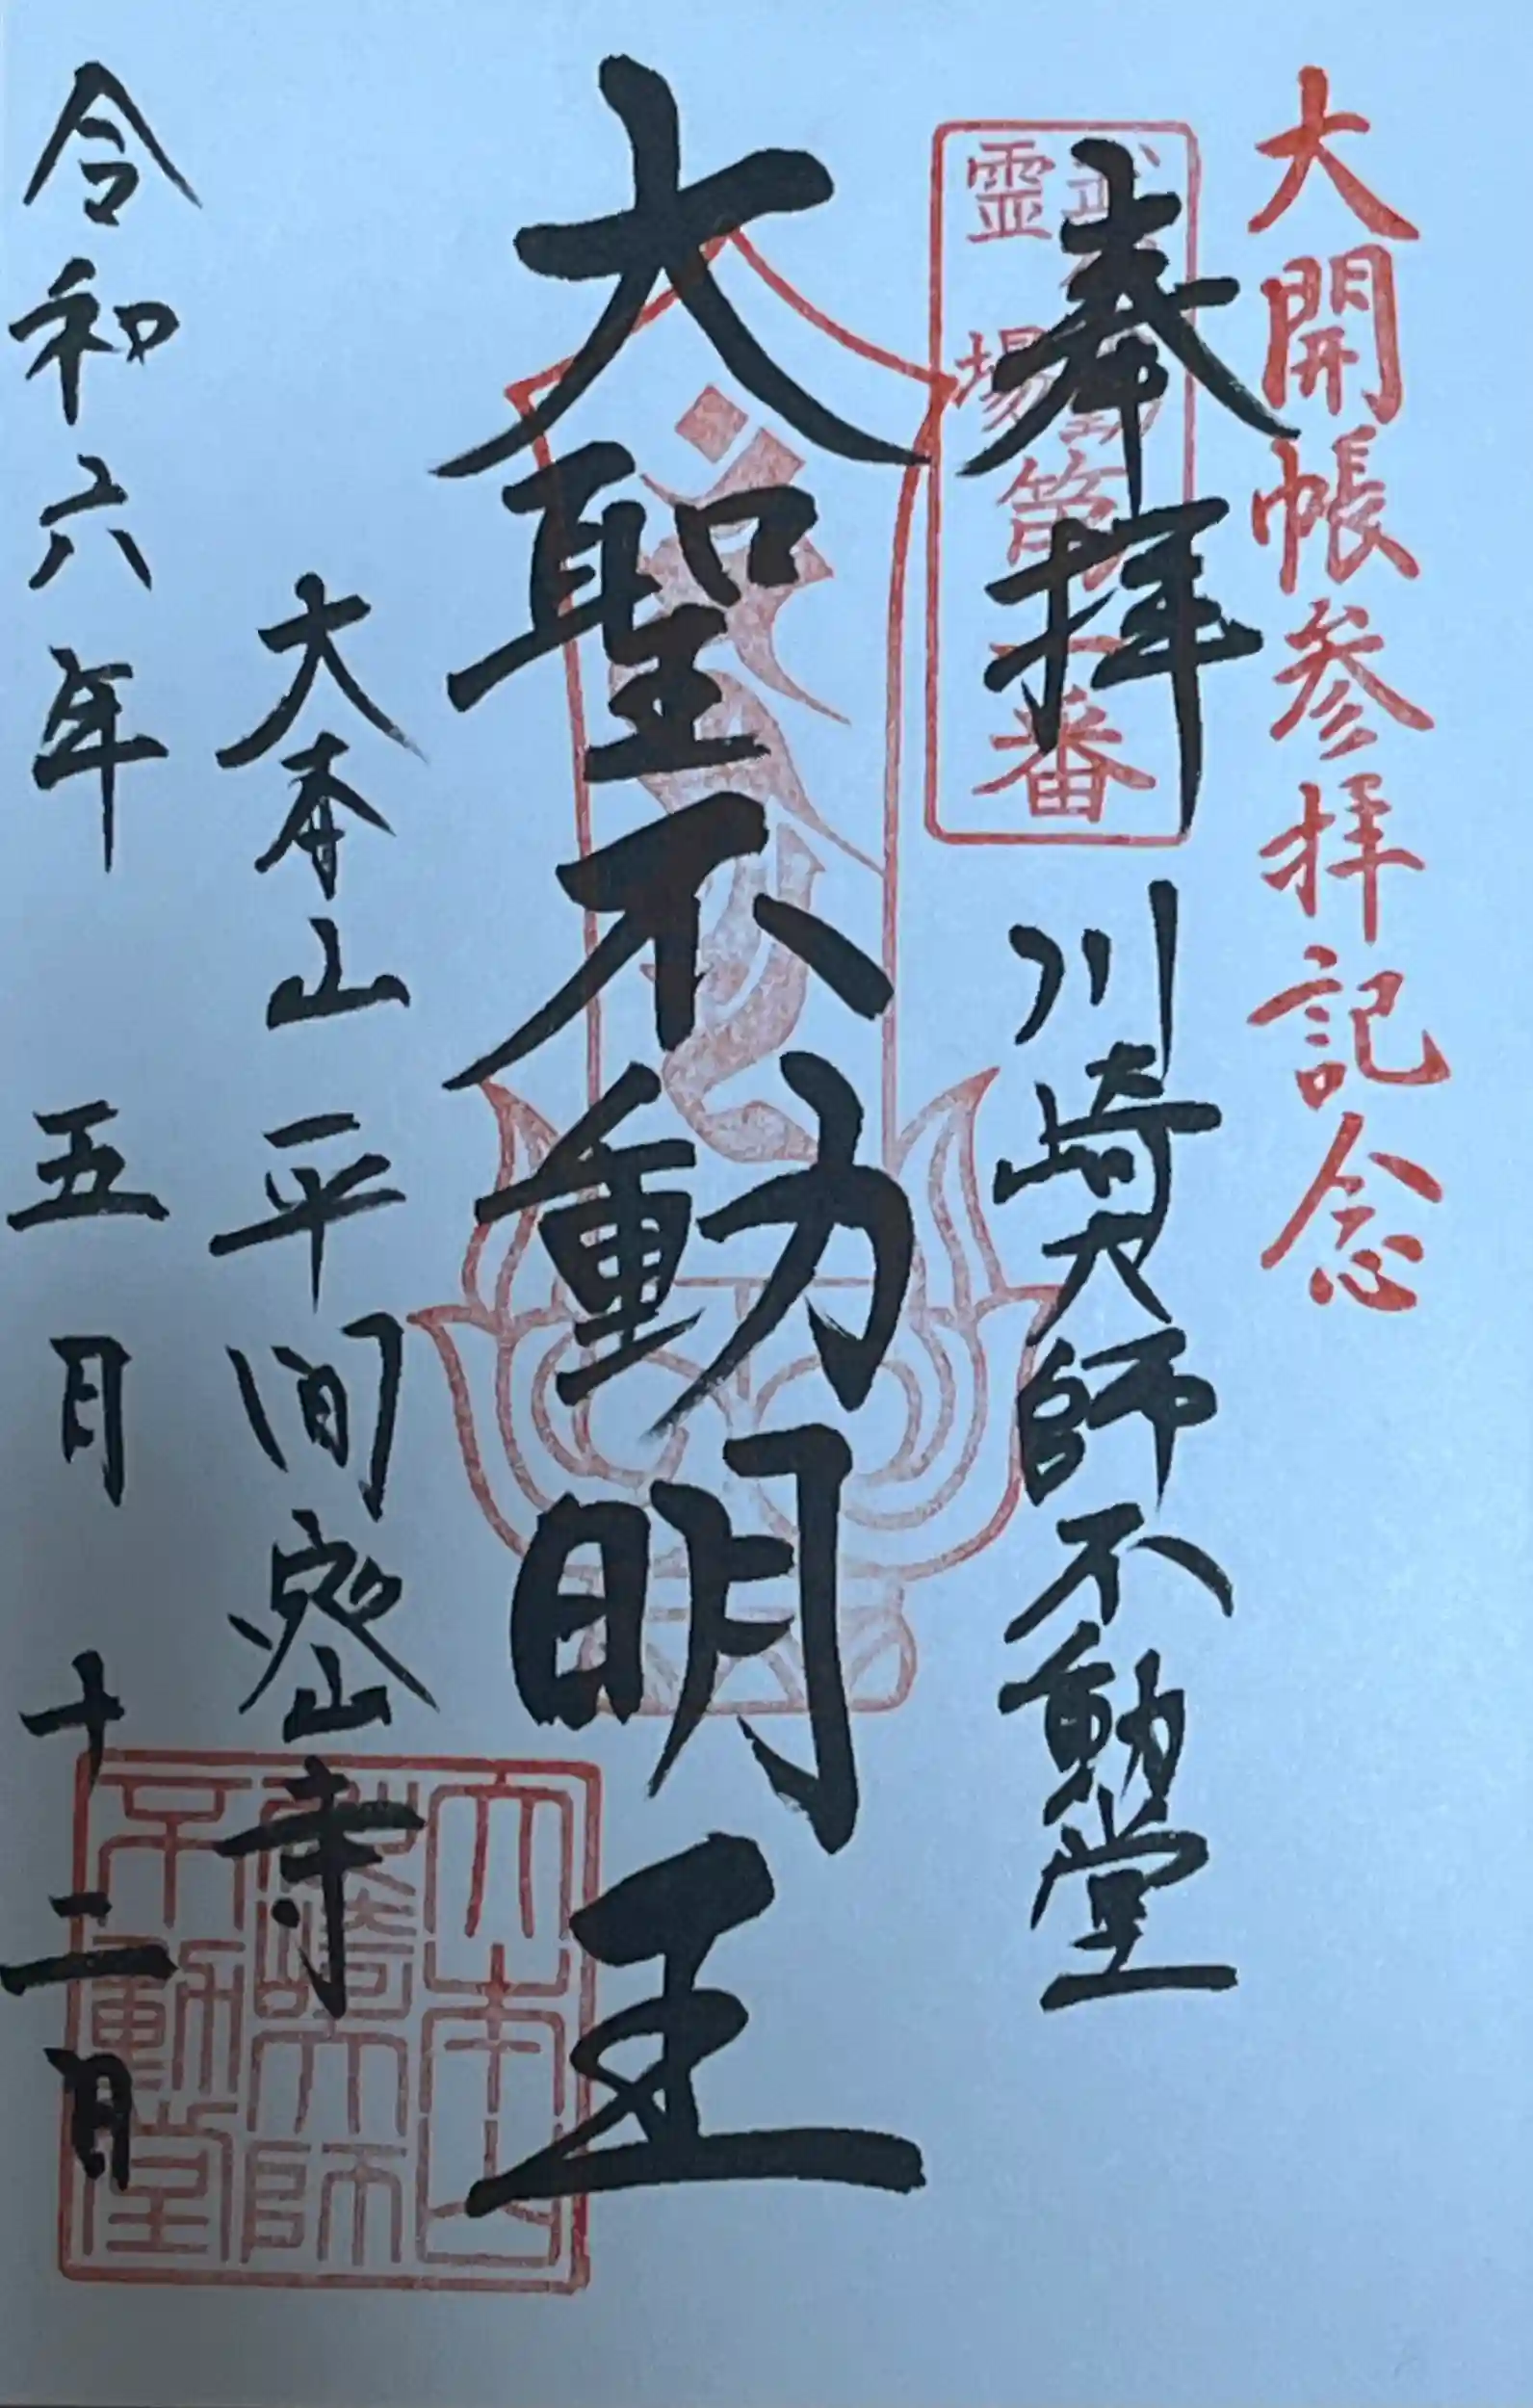 大開帳参拝記念
奉拝 川崎大師不動堂
霊場第一番
大聖不動明王
大本山 平間密寺
大本山
川崎大師
不動堂
令和六年 五月 十二日